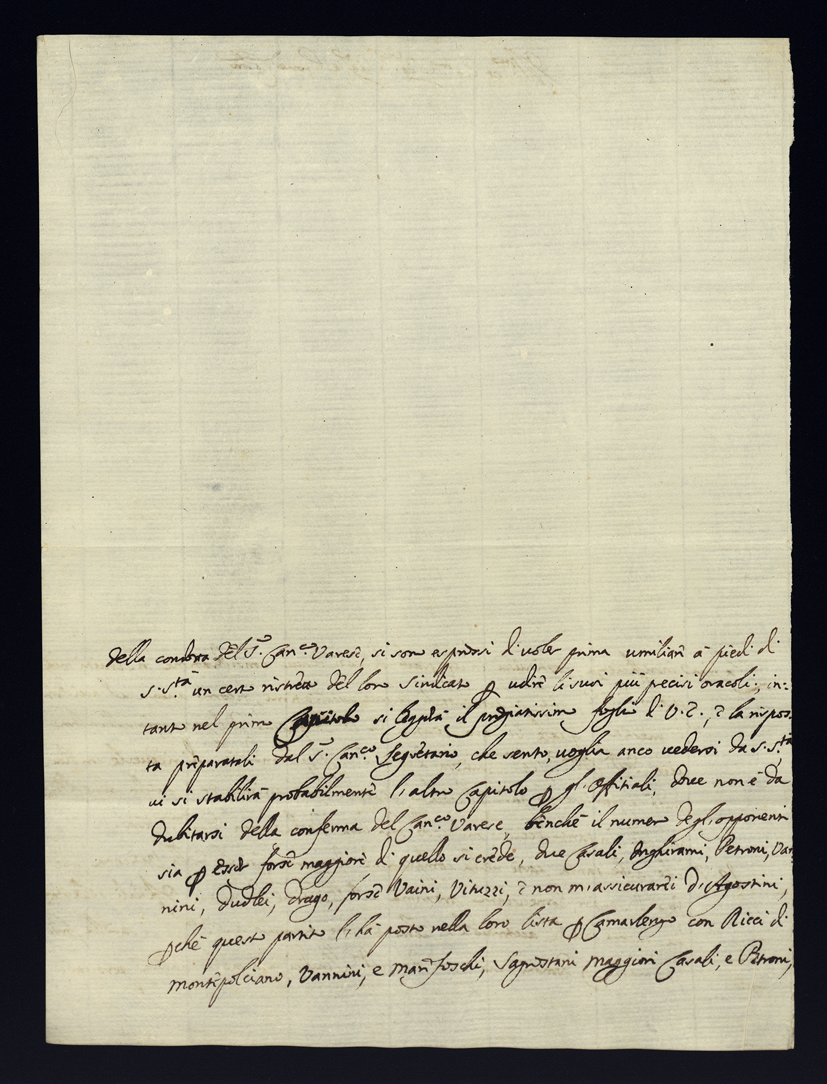 della condotta del S.r Can.co Varese, si son espressi di voler prima umiliare a piedi di
S. S.tà un certo ristretto del loro sindicato p udire li suoi più precisi oracoli; in=
tanto nel primo Capitolo si leggerà il pregiatissimo foglio di V. E., e la rispos=
ta preparatali dal S.r Can.co Segretario, che sento, voglia anco vedersi da S. S.tà
vi si stabilirà probabilmente l'altro Capitolo p gl'Offitiali, dove non è da
dubitarsi della conferma del Can.co Varese, benche il numero degl'opponenti
sia p esser forse maggiore di quello si crede, due Casali, Inghirami, Petroni, Van
nini, Dudlei, Drago, forse Vaini, Vitozzi, e non m'assicurarei d'Agostini,
pche questo partito l'há posto nella loro lista p Camarlengo con Ricci di
Montepolciano, Vannini, e Manfroschi, Sagrestani maggiori Casali, e Petroni,